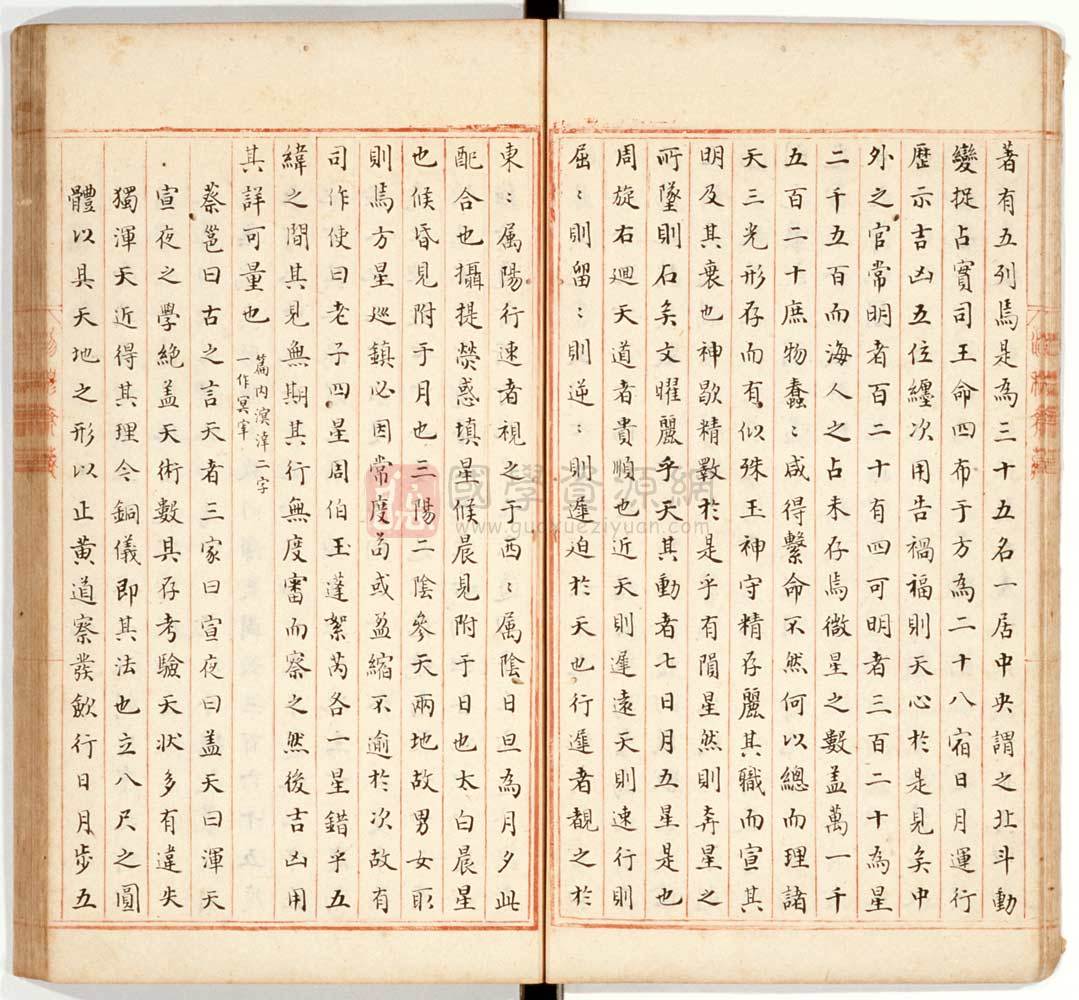 著有五列焉是為三十五名一居中央謂之北斗動
變㝎占實司王命四布于方為二十八宿日月運行
歷示吉凶五位纏次用告禍福則天心於是見矣中
外之官常明者百二十有四可明者三百二十為星
二千五百而海人之占未存焉微星之數盖萬一千
五百二十庶物蠢〻咸得繫命不然何以總而理諸
天三光形存而有似珠玉神守精存麗其職而宣其
明及其衰也神歇精斁於是乎有隕星然則奔星之
所墜則石矣文曜麗乎天其動者七日月五星是也
周旋右迴天道者貴順也近天則遲遠天則速行則
屈〻則留〻則逆〻則遲迫於天也行遲者覩之於
東〻属陽行速者視之于西〻属陰日旦為月夕此
配合也攝提熒惑填星候晨見附于日也太白晨星
也候昏見附于月也三陽二陰參天兩地故男女取
則焉方星巡鎮必因常度茍或盈縮不逾於次故有
司作使曰老子四星周伯王蓬絮芮各一星錯乎五
緯之間其見無期其行無度審而察之然後吉凶用
其詳可量也 篇内溟涬二字
一作冥窂
蔡邕曰古之言天者三家曰宣夜曰盖天曰渾天
宣夜之學絶盖天術數具存考驗天状多有違失
獨渾天近得其理今銅儀即其法也立八尺之圓
體以具天地之形以正黄道察發歛行日月步五
國學資源網
www.guoxueziyuan.com